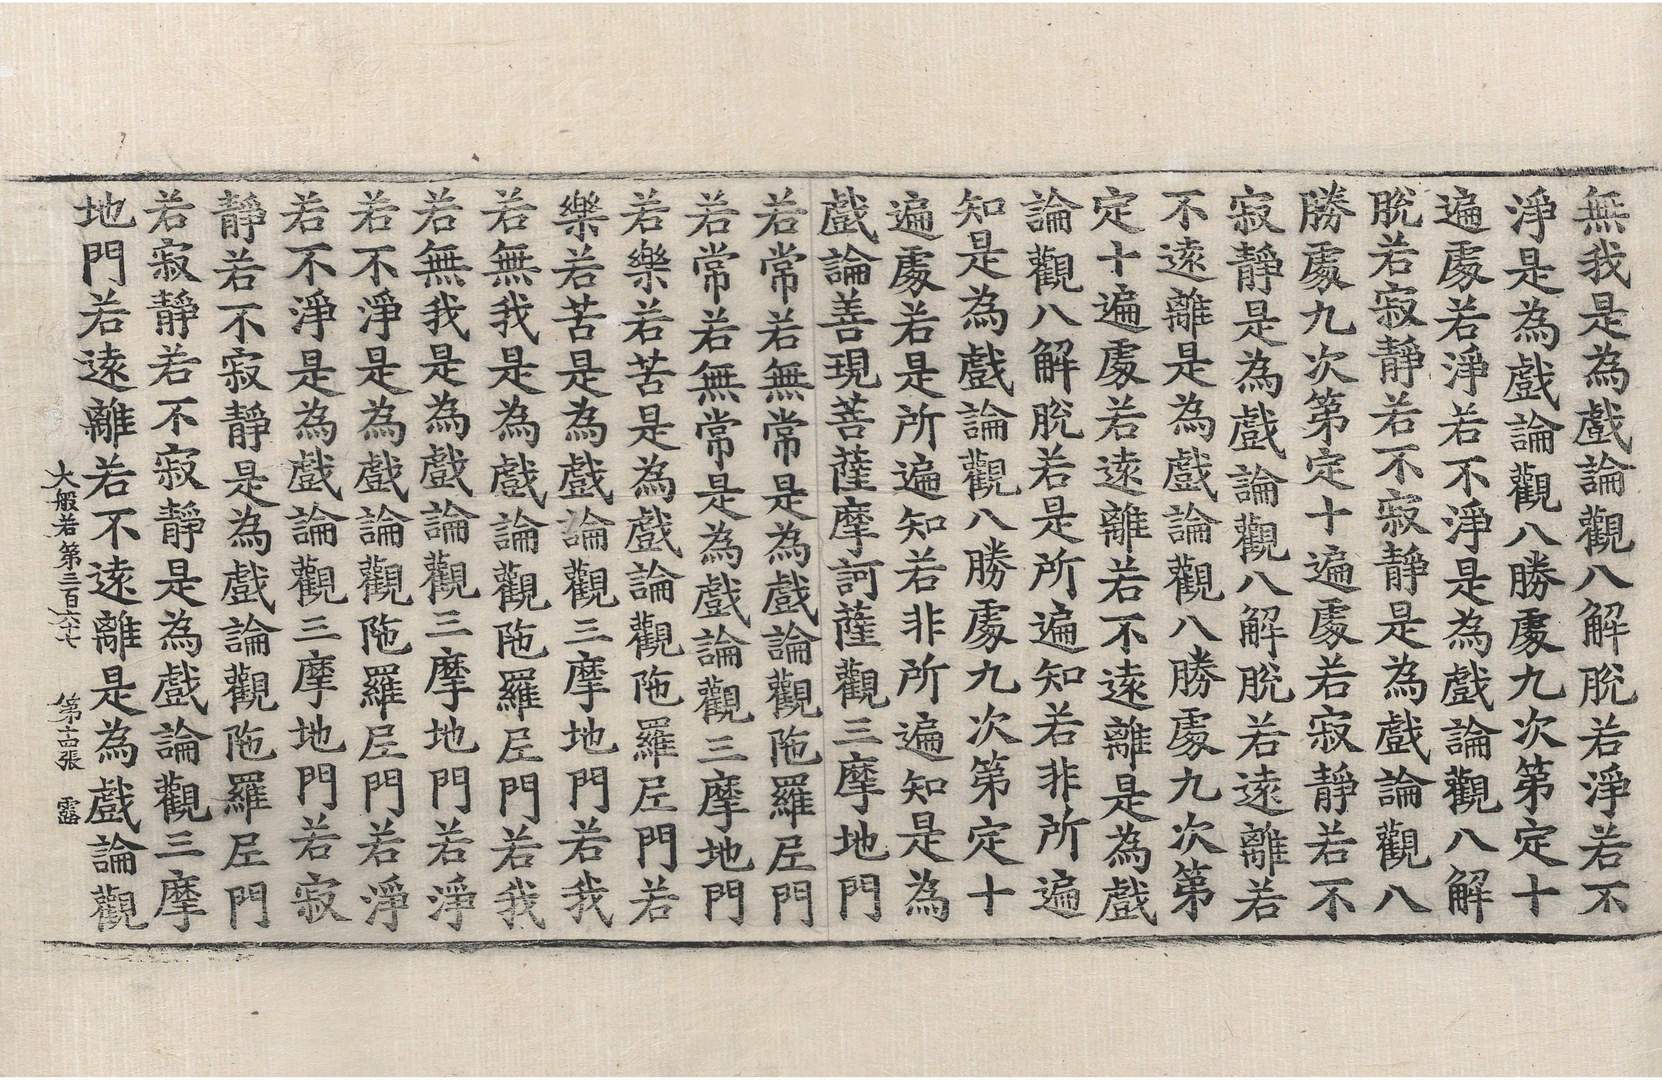 無我是為戲論觀八解脫若淨若不
淨是為戲論觀八勝處九次第定十
遍處若淨若不淨是為戲論觀八解
脫若寂靜若不寂靜是為戲論觀八
勝處九次第定十遍處若寂靜若不
寂靜是為戲論觀八解脫若遠離若
不遠離是為戲論觀八勝處九次第
定十遍處若遠離若不遠離是為戲
論觀八解脫若是所遍知若非所遍
知是為戲論觀八勝處九次第定十
遍處若是所遍知若非所遍知是為
戲論善現菩薩摩訶薩觀三摩地門
若常若無常是為戲論觀陁羅尼門
若常若無常是為戲論觀三摩地門
若樂若苦是為戲論觀陁羅尼門若
樂若苦是為戲論觀三摩地門若我
若無我是為戲論觀陁羅尼門若我
若無我是為戲論觀三摩地門若淨
若不淨是為戲論觀陁羅尼門若淨
若不淨是為戲論觀三摩地門若寂
靜若不寂靜是為戲論觀陁羅尼門
若寂靜若不寂靜是為戲論觀三摩
地門若遠離若不遠離是為戲論觀
大般若第三百六七 第十四張 露